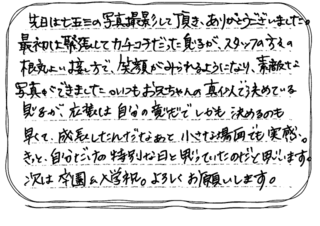 先日は七五三の写真撮影して頂き、ありがとうございました。
最初は緊張してカチコチだった息子が、スタッフの方々の
根気よい接し方で、笑顔がみられるようになり、素敵な
写真ができました。いつもお兄ちゃんの真似で決めている
息子が、衣装は自分の意志でしかも決めるのも
早くて、成長したんだなぁと小さな場面でも実感。
きっと、自分だけの特別な日と思っていたのだと思います。
次は卒園&入学祝。よろしくお願いします。